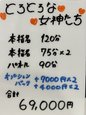 とろとろな
女神たち
本指名 120分
本指名 75分×2
パネル 90分
オプション +7000円×2
バック +4000円×2
合計
69,000円